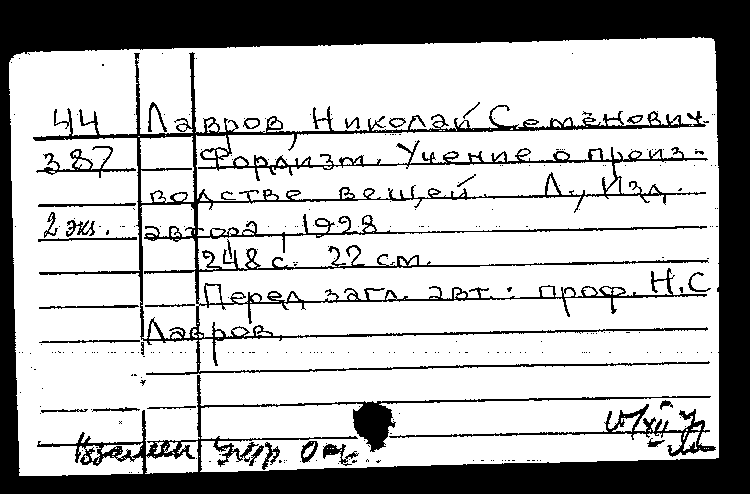 44 Лавров, Николай Семёнович
387 Фордизм. Учение о произ-
водстве вещей. Л., Изд.
2 экз. автора, 1928.
248 с. 22 см.
Перед загл. авт.: проф. Н.С.
Лавров.
Взамен